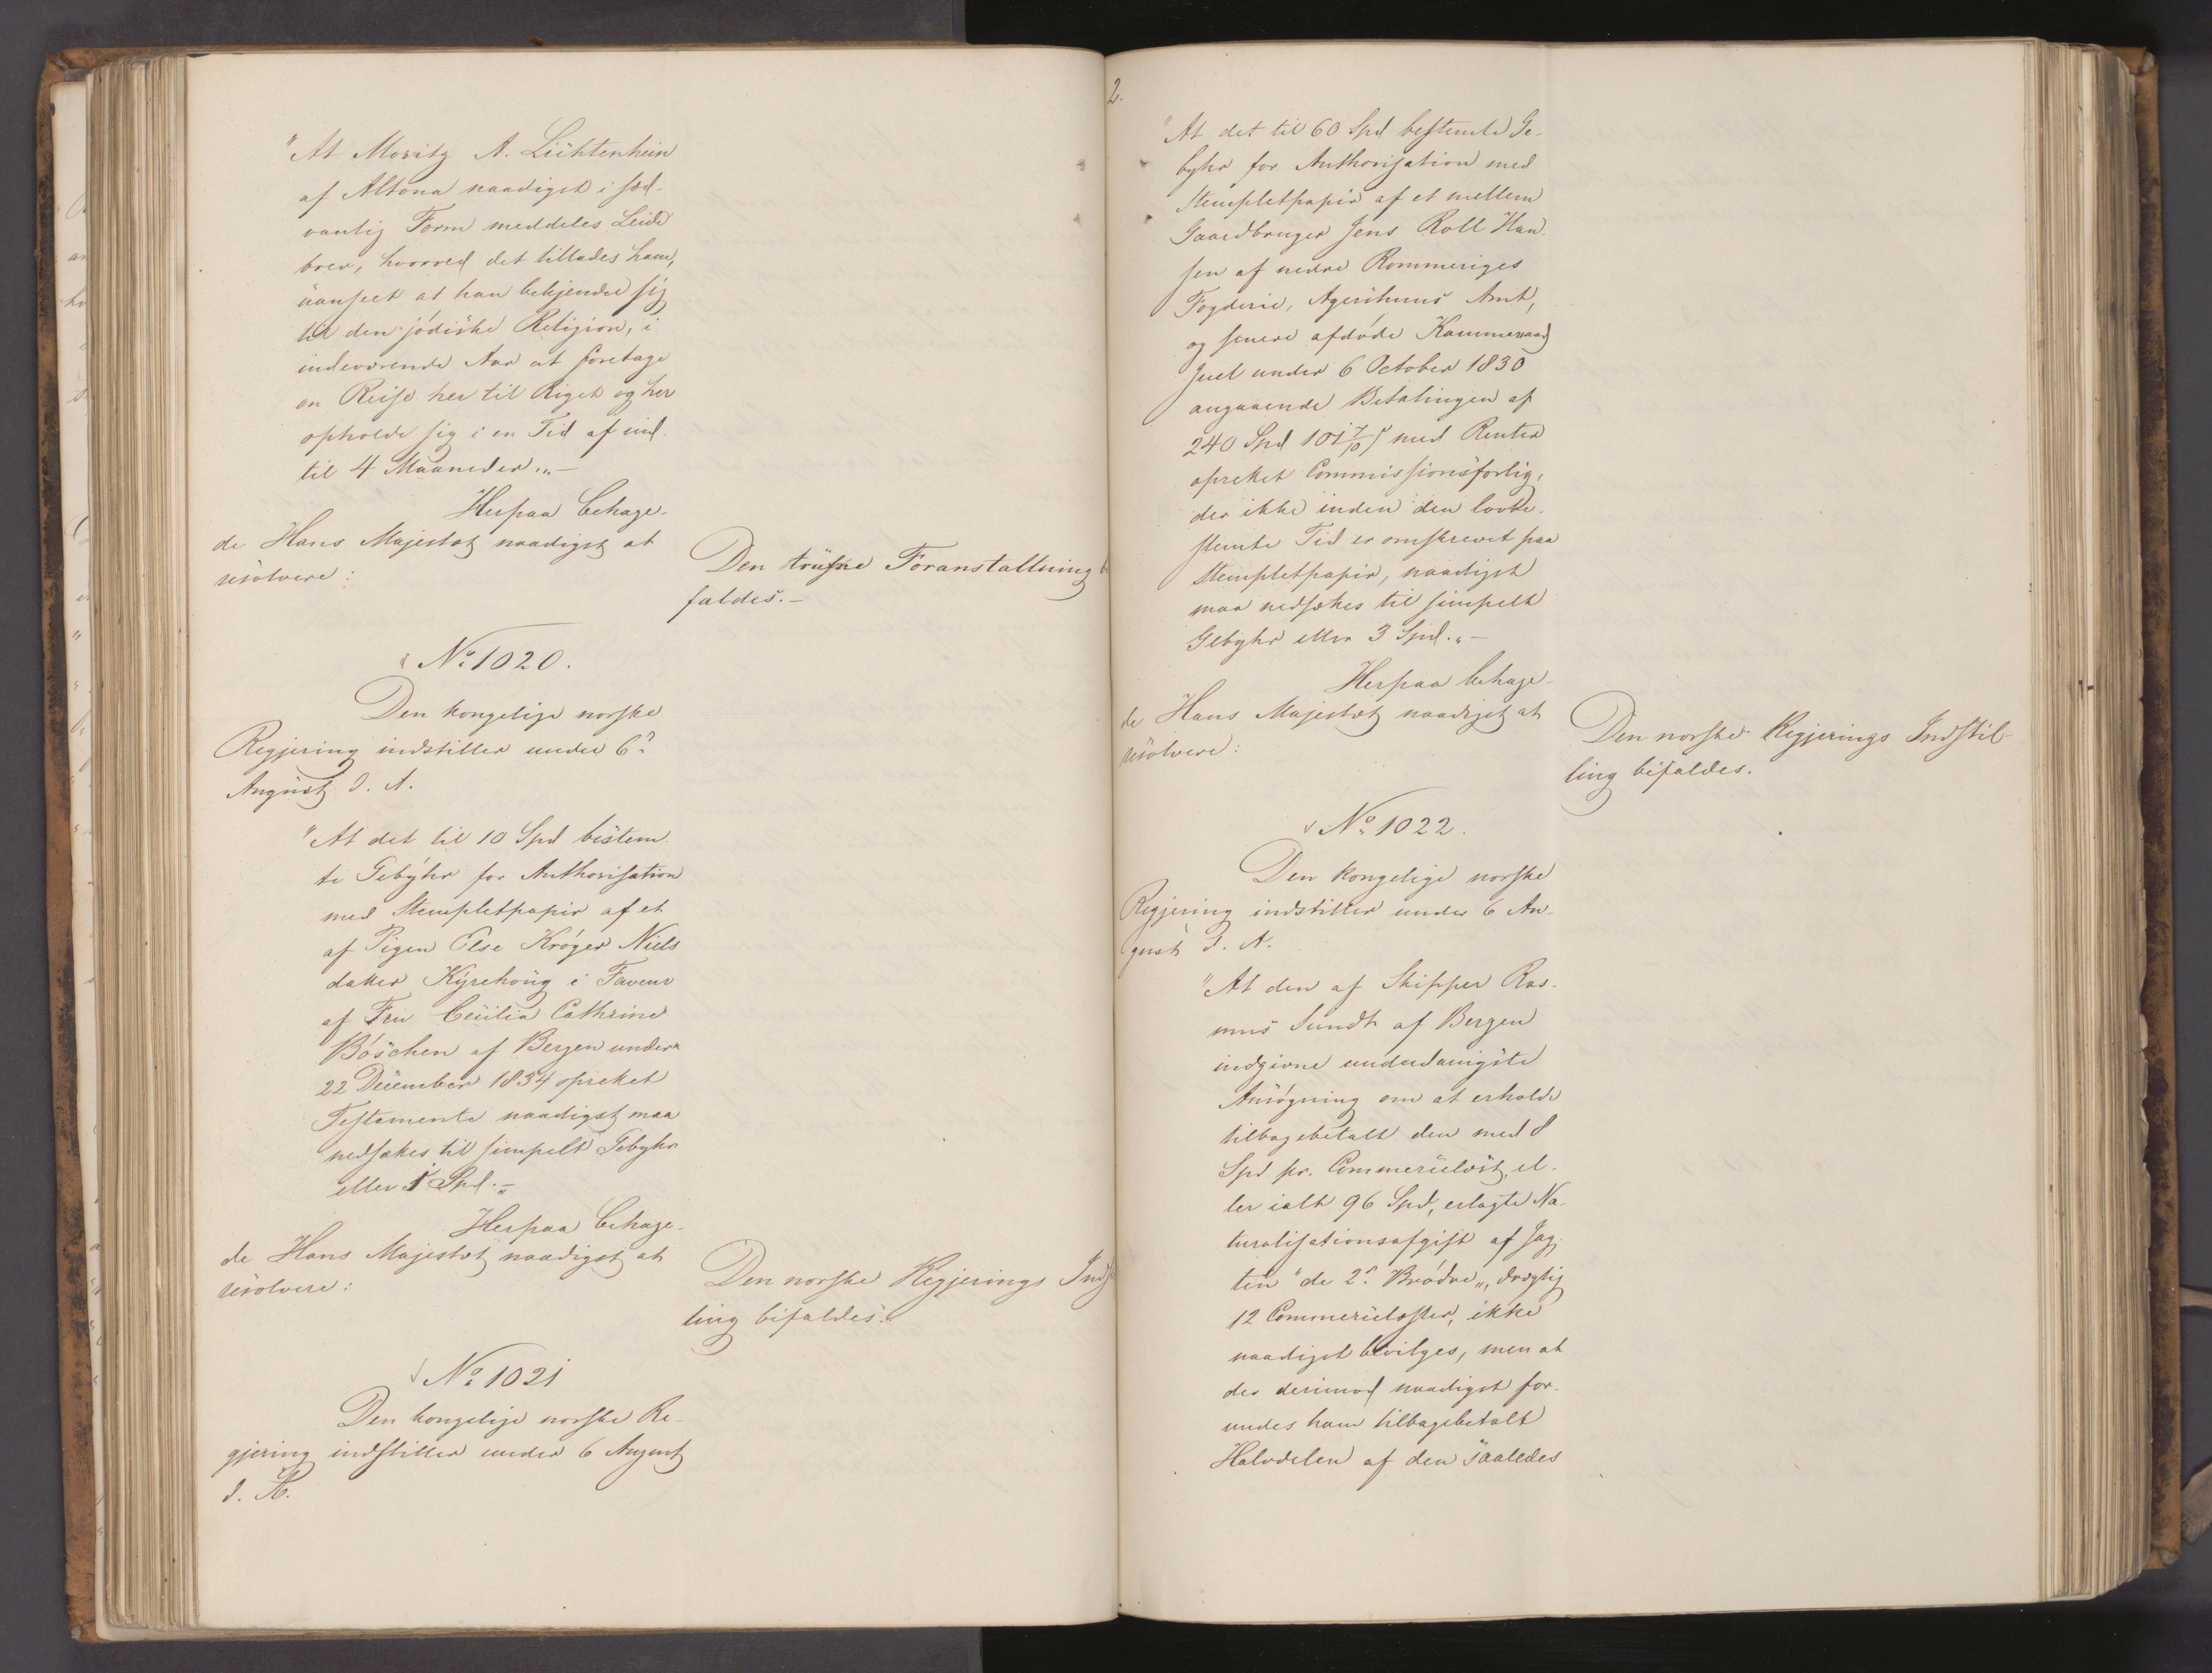 "At Moritz A. Lichtenhein
af Altona naadigst i sæd-
vanlig Form meddeles Leide
brev, hvorved det tillades ham,
uanseet at han bekjender sig
til den jødiske Religion, i
indeværende Aar at foretage
en Reise her til Riget og her
opholde sig i en Tid af ind-
til 4 Maaneder."—
Herpaa behage-
de Hans Majestæt naadigst at
resolvere:
Den trufne Foranstaltning
faldes.—
No 1020.
Den kongelige norske
Regjering indstiller under 6te
August d. A.
"At det til 10 Spd bestem-
te Gebyhr for Authorisation
med Stempletpapir af et
af Pigen Else Krøger Niels
datter Kyrehoug i Faveur
af Fru Cecilia Cathrine
Bøschen af Bergen under
22 December 1834 oprettet
Testamente naadigst maa
nedsættes til simpelt Gebyhr
eller 1 Spd."
Herpaa behage-
de Hans Majestæt naadigst at
resolvere:
Den norske Regjerings Indst
ling bifaldes.
No 1021
Den kongelige norske Re-
gjering indstiller under 6 August
d. A.
2.
"At det til 60 Spd bestemte Ge-
byhr for Authorisation med
Stempletpapir af et mellem
Gaardbruger Jens Roll Han-
sen af nedre Rommeriges
Fogderie, Agershuus Amt,
og senere afdøde Kammerraad
Juel under 6 October 1830
angaaende Betalingen af
240 Spd 101 7/10 s med Renter
oprettet Commissionsforlig,
der ikke inden den lovbe-
stemte Tid er omskrevet paa
Stempletpapir, naadigst
maa nedsættes til simpelt
Gebyhr eller 3 Spd."—
Herpaa behage-
de Hans Majestæt naadigst at
resolvere:
Den norske Regjerings Indstil-
ling bifaldes.
No 1022.
Den kongelige norske
Regjering indstiller under 6 Au-
gust d. A.
"At den af Skipper Ras-
mus Sundt af Bergen
indgivne underdanigste
Ansøgning om at erholde
tilbagebetalt den med 8
Spd pr. Commercielæst, el-
ler ialt 96 Spd, erlagte Na-
turalisationsafgift af Jag-
ten "de 2de Brødre", drægtig
12 Commercielæster, ikke
naadigst bevilges, men at
der derimod naadigst for-
undes ham tilbagebetalt
Halvdelen af den saaledes